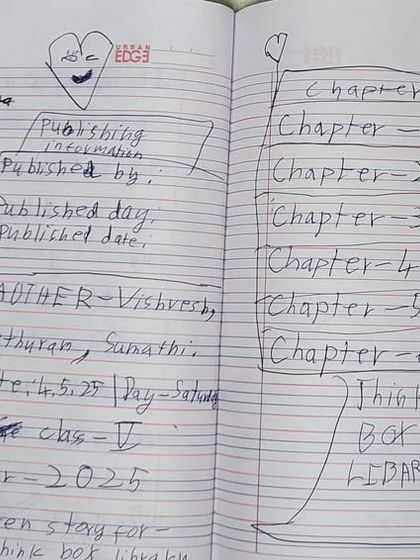 URBAN
EDGE
Publishing
information
Published by:
Published day:
Published date:
AOTHER-Vishvesh,
thuram, Sumathi.
te:4.5.25 | Day-Saturday
class-V
r-2025
en story for-
hink box library
Chapter
Chapter-
Chapter-2
Chapter-3
Chapter-4
Chapter-5
Chapter-
Think
BOX
LIBAR